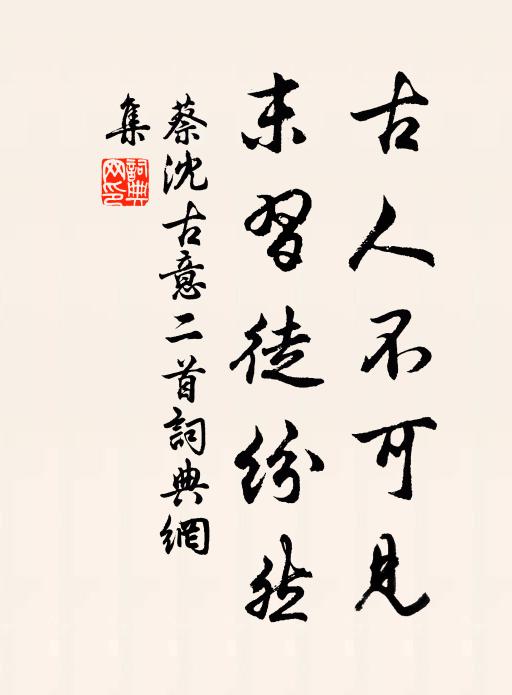 古人不可見
末習徒紛然
蔡沈古意二首詞典網
集
詞典
网印